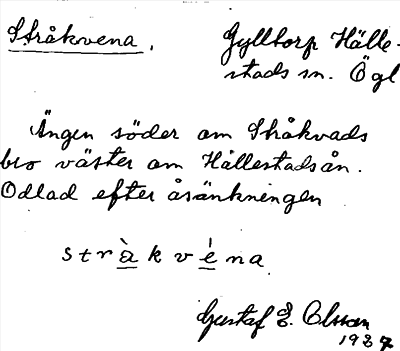 Stråkvena.
Gylltorp Hälle-
stads sn. Ögl
Ängen söder om Skåkvads
bro väster om Hällestadsån.
Odlad efter åsänkningen
stràkvéna
Gustaf E. Olsson
1927